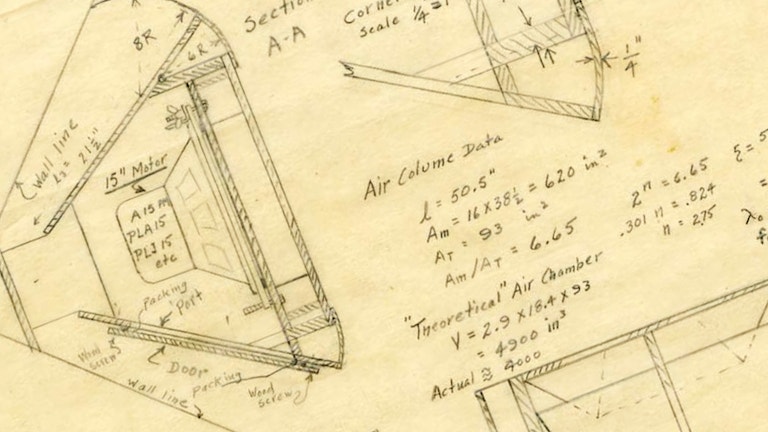 Section
A-A
Corner
Scale 1/4 = 1
8R
6R
1"
4
Wall line
L2 = 21 1/2"
15" Motor
A15 PM
PLA15
PLJ 15
etc
Packing
Port
Wood
screw
Door
packing
Wood
screw
Wall line
Air Colume Data
l = 50.5"
Am = 16 x 38 1/2 = 620 in²
AT = 93 in²
Am/AT = 6.65
2ⁿ = 6.65
.301 n = .824
n = 2.75
ξ = 5
=
λo
"Theoretical" Air Chamber
V = 2.9 x 18.4 x 93
= 4900 in³
Actual ≅ 4000